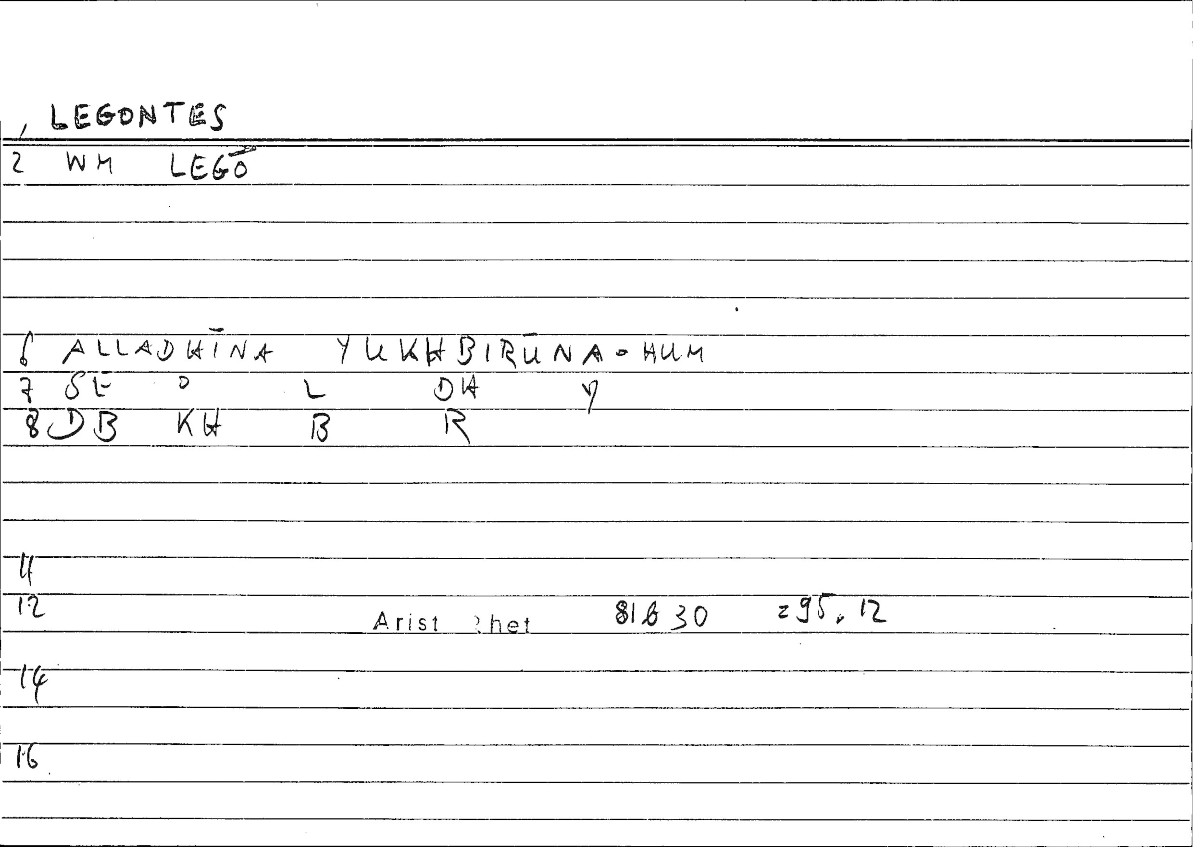 1 LEGONTES
2 WM LEGŌ
6 ALLADHĪNA YUKHBIRŪNA-HUM
7 SE ' L DH Y
8 DB KH B R
11
12 Arist Rhet 81b30 =95.12
14
16